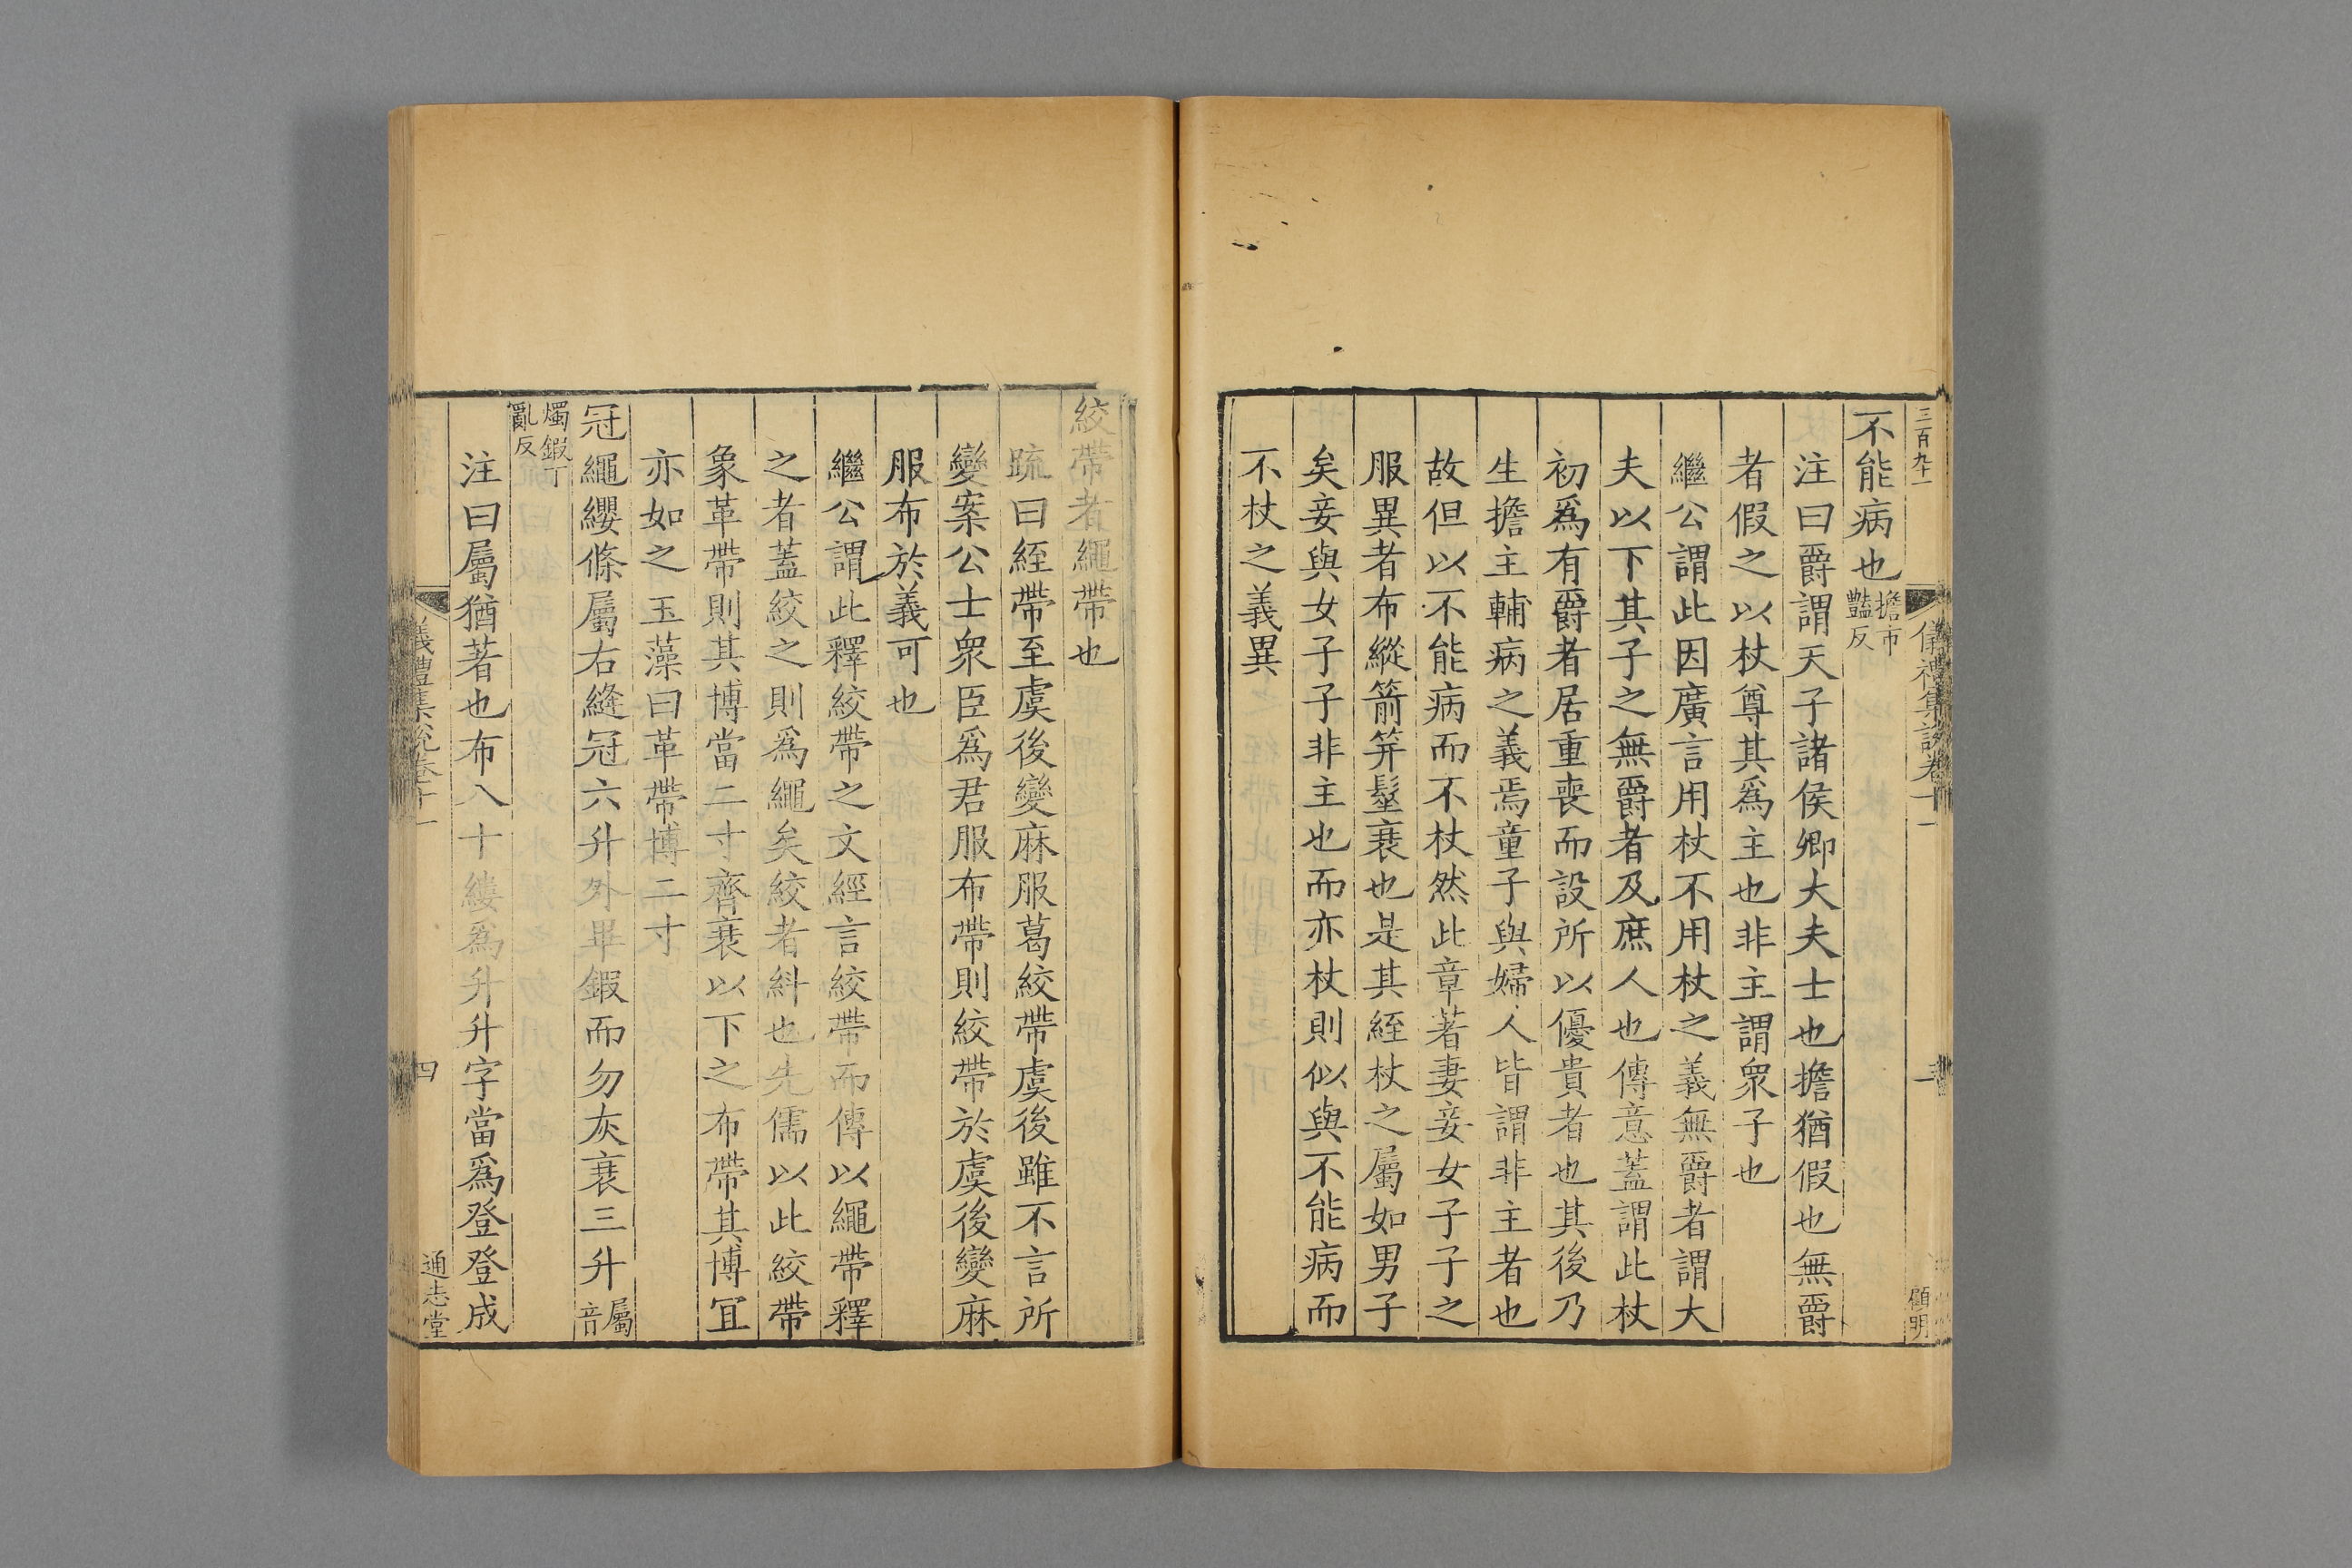 三百九十一
儀禮集說卷十一
三
顧明
不能病也擔市豔反
注曰爵謂天子諸侯卿大夫士也擔猶假也無爵
者假之以杖尊其爲主也非主謂衆子也
繼公謂此因廣言用杖不用杖之義無爵者謂大
夫以下其子之無爵者及庶人也傳意蓋謂此杖
初爲有爵者居重喪而設所以優貴者也其後乃
生擔主輔病之義焉童子與婦人皆謂非主者也
故但以不能病而不杖然此章著妻妾女子子之
服異者布緫箭笄髽衰也是其絰杖之屬如男子
矣妾與女子子非主也而亦杖則似與不能病而
不杖之義異
絞帶者繩帶也
疏曰絰帶至虞後變麻服葛絞帶虞後雖不言所
變案公士衆臣爲君服布帶則絞帶於虞後變麻
服布於義可也
繼公謂此釋絞帶之文經言絞帶而傳以繩帶釋
之者蓋絞之則爲繩矣絞者糾也先儒以此絞帶
象革帶則其博當二寸齊衰以下之布帶其博宜
亦如之玉藻曰革帶博二寸
冠繩纓條屬右縫冠六升外畢鍛而勿灰衰三升屬音
燭鍛丁亂反
注曰屬猶著也布八十縷爲升升字當爲登登成
儀禮集說卷十一
四
通志堂